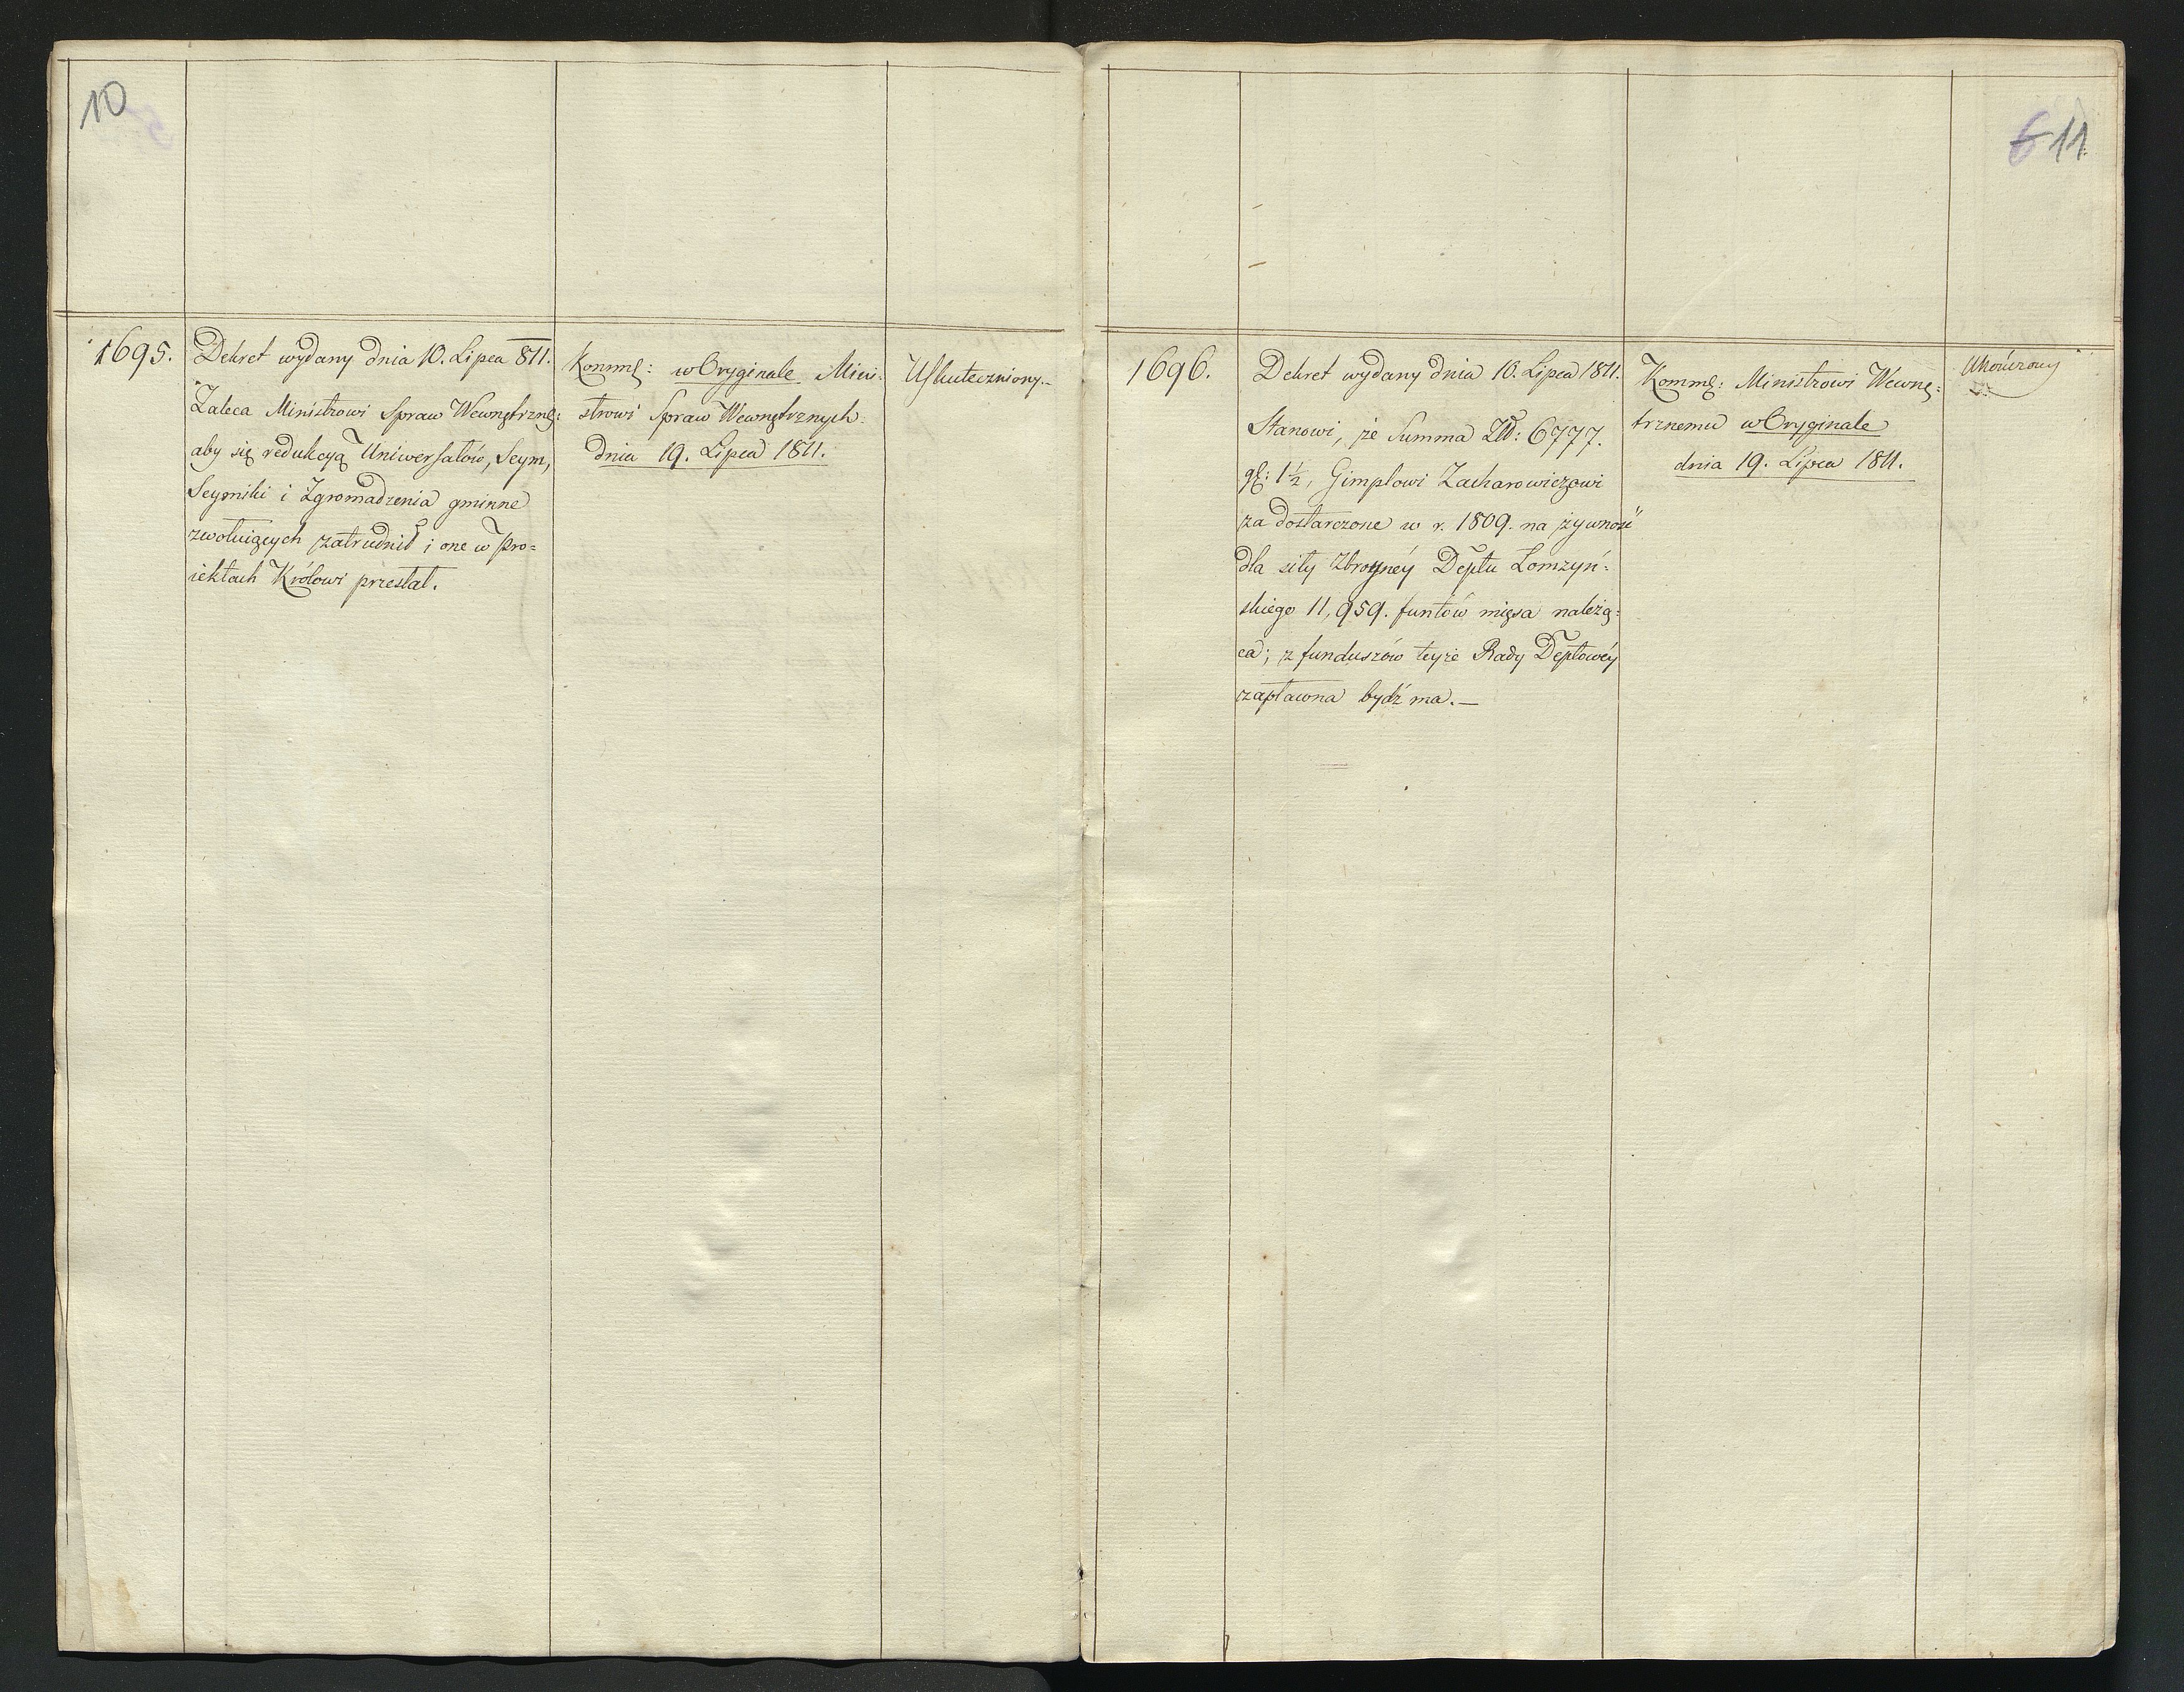 10
1695.
Dekret wydany dnia 10. Lipca 811.
Zaleca Ministrowi Spraw Wewnętrzne:
aby się redukcyą Uniwersałów, Seym,
Seymiki i Zgromadzenia gminne
zwołuiących zatrudnił i one w Pro=
iektach Królowi przesłał.
Kommę: w Oryginale Mini=
strowi Spraw Wewnętrznych
dnia 19. Lipca 1811.
Uskuteczniony.-
6 11
1696.
Dekret wydany dnia 10. Lipca 1811.
Stanowi, że Summa Zł: 6777.
gr: 1½, Gimplowi Zacharowiczowi
za dostarczone w r. 1809. na żywność
dla siły zbroyney Deptu Łomżyń=
skiego 11,959. funtów mięsa należą=
ca; z funduszów teyże Rady Deptowey
zapłacona bydź ma.—
Kommę: Ministrowi Wewnę=
trznemu w Oryginale
dnia 19. Lipca 1811.
Ukończony